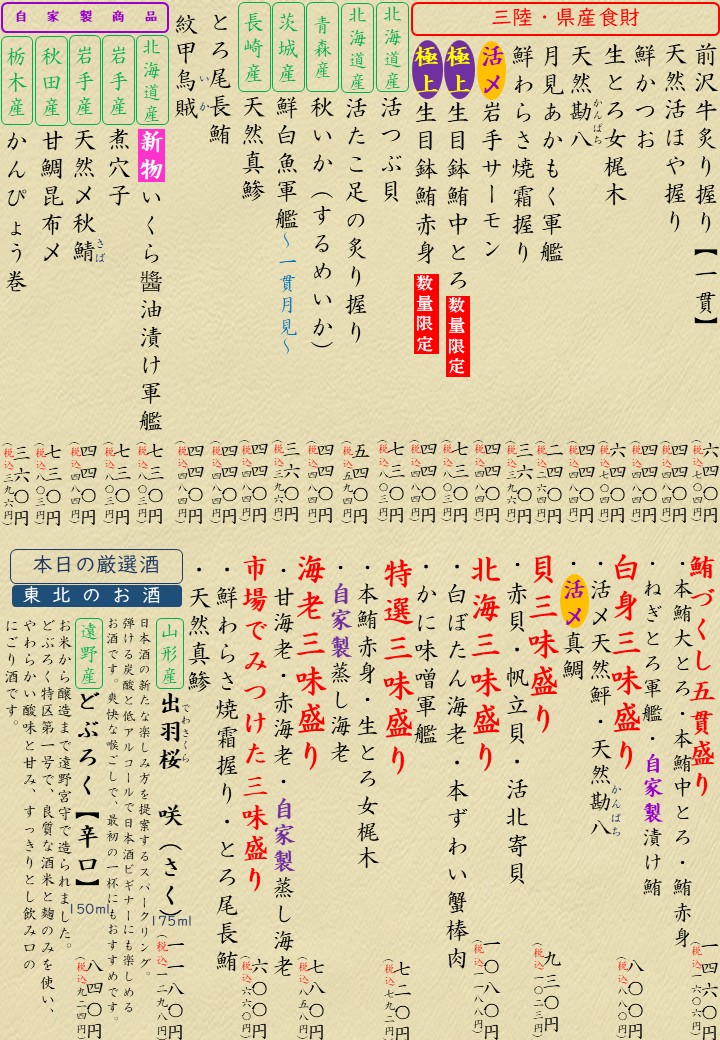 三陸・県産食財
前沢牛炙り握り【一貫】 六四〇円(税込七〇四円)
天然活ほや握り 四四〇円(税込四八四円)
鮮かつお 四四〇円(税込四八四円)
生とろ女梶木 六四〇円(税込七〇四円)
天然勘八 かんぱち 四四〇円(税込四八四円)
月見あかもく軍艦 二四〇円(税込二六四円)
鮮わらさ焼霜握り 三六〇円(税込三九六円)
活〆岩手サーモン 四四〇円(税込四八四円)
極上生目鉢鮪中とろ 数量限定 七三〇円(税込八〇三円)
極上生目鉢鮪赤身 数量限定 四四〇円(税込四八四円)
北海道産 活つぶ貝 七三〇円(税込八〇三円)
北海道産 活たこ足の炙り握り 五四〇円(税込五九四円)
青森産 秋いか(するめいか) 四四〇円(税込四八四円)
茨城産 鮮白魚軍艦~一貫月見~ 三六〇円(税込三九六円)
長崎産 天然真鯵 四四〇円(税込四八四円)
とろ尾長鮪 四四〇円(税込四八四円)
紋甲烏賊 いか 四四〇円(税込四八四円)
自家製商品
北海道産 新物いくら醬油漬け軍艦 七三〇円(税込八〇三円)
岩手産 煮穴子 七三〇円(税込八〇三円)
岩手産 天然〆秋鯖 さば 四四〇円(税込四八四円)
秋田産 甘鯛昆布〆 七三〇円(税込八〇三円)
栃木産 かんぴょう巻 三六〇円(税込三九六円)
鮪づくし五貫盛り 一四六〇円(税込一六〇六円)
・本鮪大とろ・本鮪中とろ・鮪赤身
・ねぎとろ軍艦・自家製漬け鮪
白身三味盛り 八〇〇円(税込八八〇円)
・活〆天然鮃・天然勘八 かんぱち
・活〆真鯛
貝三味盛り 九三〇円(税込一〇二三円)
・赤貝・帆立貝・活北寄貝
北海三味盛り 一〇八〇円(税込一一八八円)
・白ぼたん海老・本ずわい蟹棒肉
・かに味噌軍艦
特選三味盛り 七二〇円(税込七九二円)
・本鮪赤身・生とろ女梶木
・自家製蒸し海老
海老三味盛り 七八〇円(税込八五八円)
・甘海老・赤海老・自家製蒸し海老
市場でみつけた三味盛り 六〇〇円(税込六六〇円)
・鮮わらさ焼霜握り・とろ尾長鮪
・天然真鯵
本日の厳選酒
東北のお酒
山形産 出羽桜 でわさくら 咲(さく) 175ml 一一八〇円(税込一二九八円)
日本酒の新たな楽しみ方を提案するスパークリング。
弾ける炭酸と低アルコールで日本酒ビギナーにも楽しめる
お酒です。爽快な喉ごしで、最初の一杯にもおすすめです。
遠野産 どぶろく【辛口】 150ml 八四〇円(税込九二四円)
お米から醸造まで遠野宮守で造られました。
どぶろく特区第一号で、良質な酒米と麹のみを使い、
やわらかい酸味と甘み、すっきりとし飲み口の
にごり酒です。